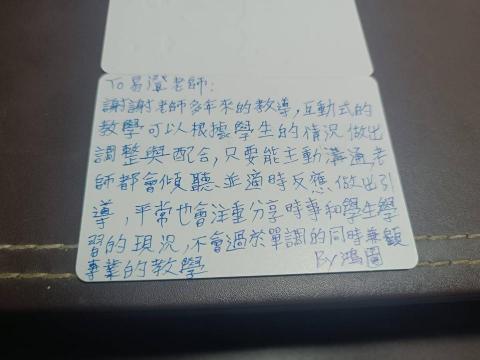 To 易瀅老師:
謝謝老師多年來的教導,互動式的
教學可以根據學生的情況做出
調整與配合,只要能主動溝通老
師都會傾聽並適時反應做出引
導,平常也會注重分享時事和學生學
習的現況,不會過於單調的同時兼顧
專業的教學
By 鴻圖